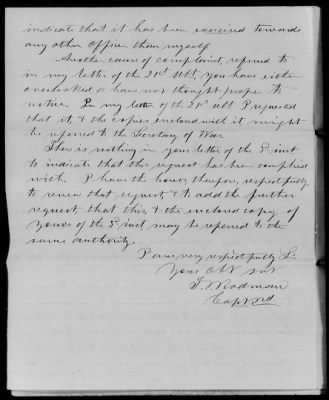 indicate that it has been exercised towards
any other Officer than myself.
Another cause of complaint, referred to
in my letter of the 21st Ult, you have either
overlooked or have not thought proper to
notice. In my letter of the 21st ult I requested
that it, & the copies enclosed with it might
be referred to the Secretary of War.
There is nothing in your letter of the 5 inst
to indicate that this request has been complied
with. I have the honor, therefore, respectfully
to renew that request, & to add the further
request, that this, & the enclosed copy of
yours of the 5 inst may be referred to the
same authority.
I am, very respectfully Sir
Your Obt svt
T. J. Rodman
Capt Ord